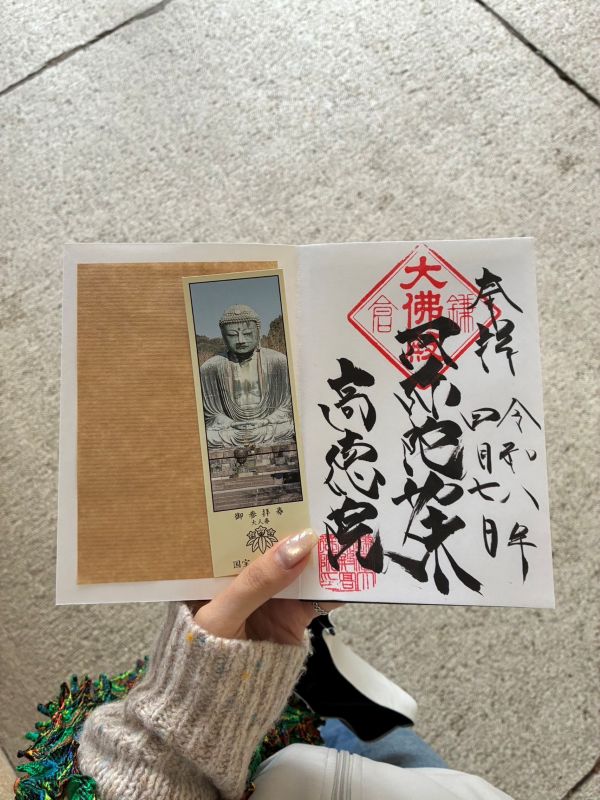 奉拝
令和八年
四月七日
大佛殿
鎌倉
阿弥陀如来
高徳院
御参拝券
大人券
国宝